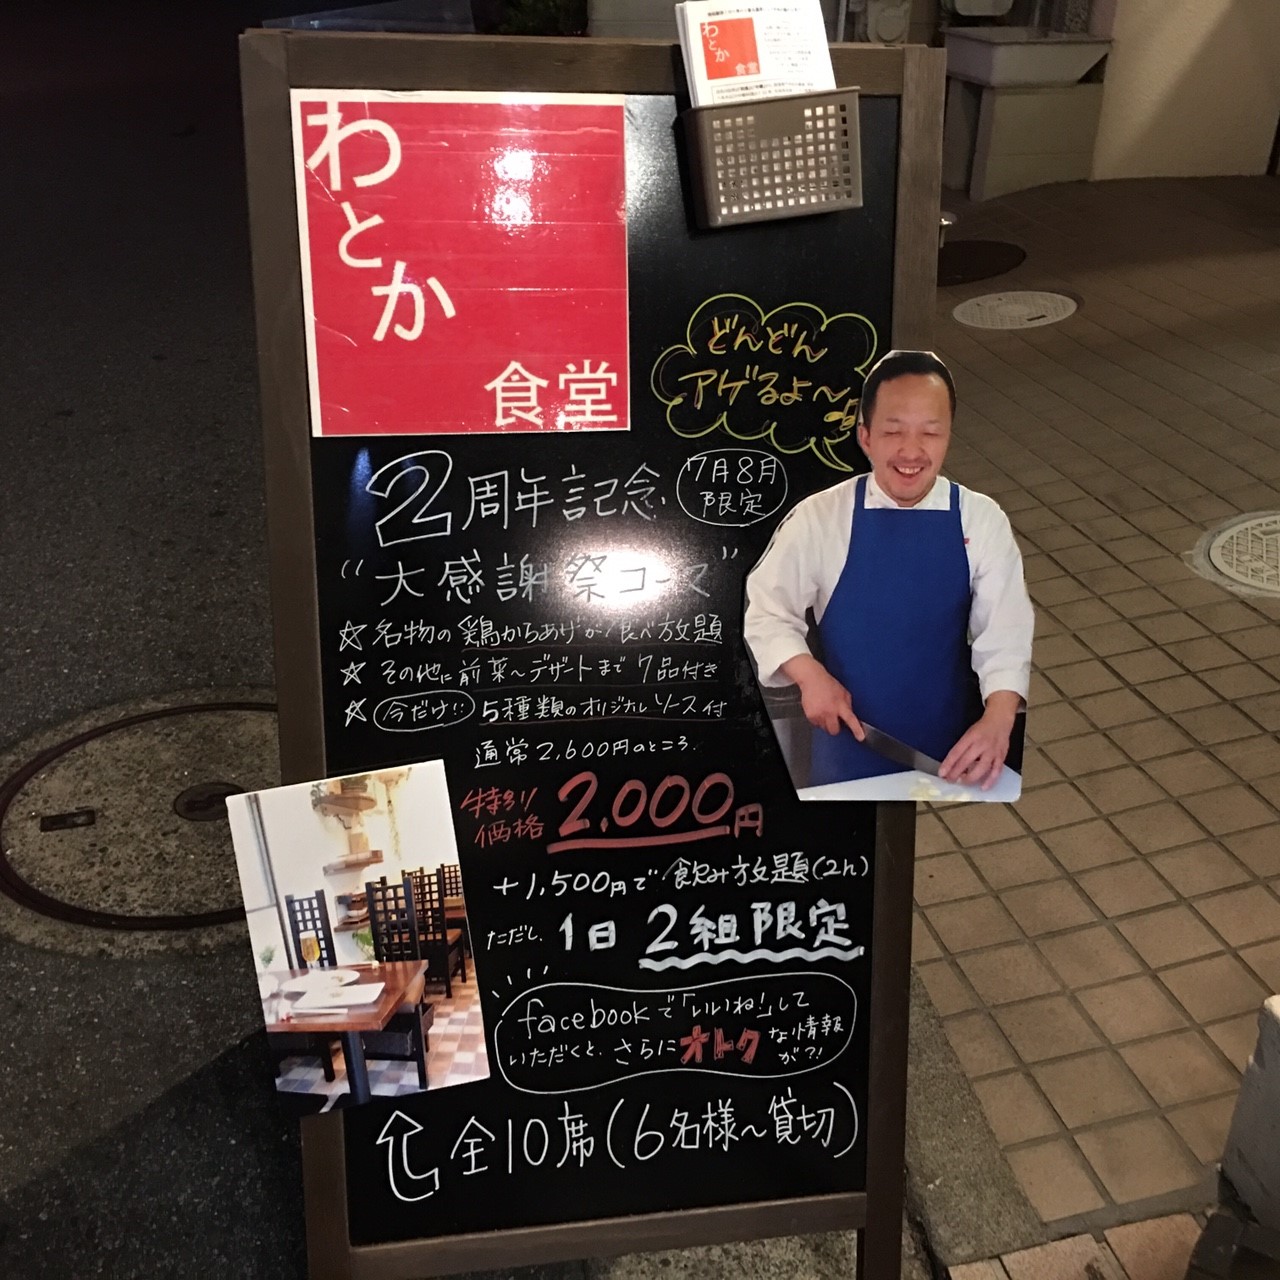 わとか
食堂
わとか
食堂
どんどん
アゲるよ〜
2周年記念
7月8月
限定
“大感謝祭コース”
☆ 名物の鶏からあげが食べ放題
☆ その他に前菜〜デザートまで7品付き
☆ 今だけ!! 5種類のオリジナルソース付
通常2,600円のところ
特別
価格
2,000円
+1,500円で飲み放題(2h)
ただし、1日2組限定
facebookで「いいね!」して
いただくと、さらにオトクな情報
が?!
全10席(6名様〜貸切)